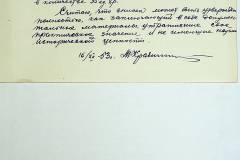 в количестве 35 ед. хр.
Считаю, что описей может быть утверждена
полностью, как заключающий в себе документ
тальные материалы утратившие свое
практическое значение и не имеющие научно
исторической ценности.
16/XI-53г.